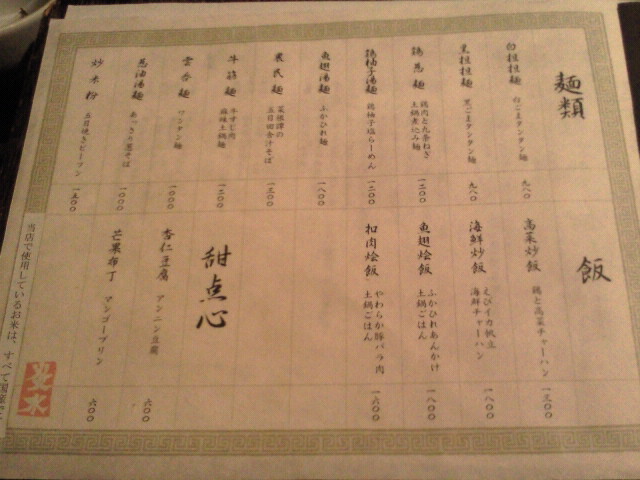 麺類
白担担麺
白ごまタンタン麺
九八〇
黒担担麺
黒ごまタンタン麺
九八〇
鶏葱麺
鶏肉と九条ねぎ
土鍋煮込み麺
一二〇〇
鶏柚子湯麺
鶏柚子塩らーめん
一二〇〇
魚翅湯麺
ふかひれ麺
一八〇〇
農民麺
菜根譚の
五目田舎汁そば
一三〇〇
牛筋麺
牛すじ肉
麻辣土鍋麺
一二〇〇
雲呑麺
ワンタン麺
一〇〇〇
葱油湯麺
あっさり葱そば
一〇〇〇
炒米粉
五目焼きビーフン
一五〇〇
飯
高菜炒飯
鶏と高菜チャーハン
一三〇〇
海鮮炒飯
えびイカ帆立
海鮮チャーハン
一八〇〇
魚翅烩飯
ふかひれあんかけ
土鍋ごはん
一八〇〇
扣肉烩飯
やわらか豚バラ肉
土鍋ごはん
一六〇〇
甜点心
杏仁豆腐
アンニン豆腐
六〇〇
芒果布丁
マンゴープリン
六〇〇
当店で使用しているお米は、すべて国産で